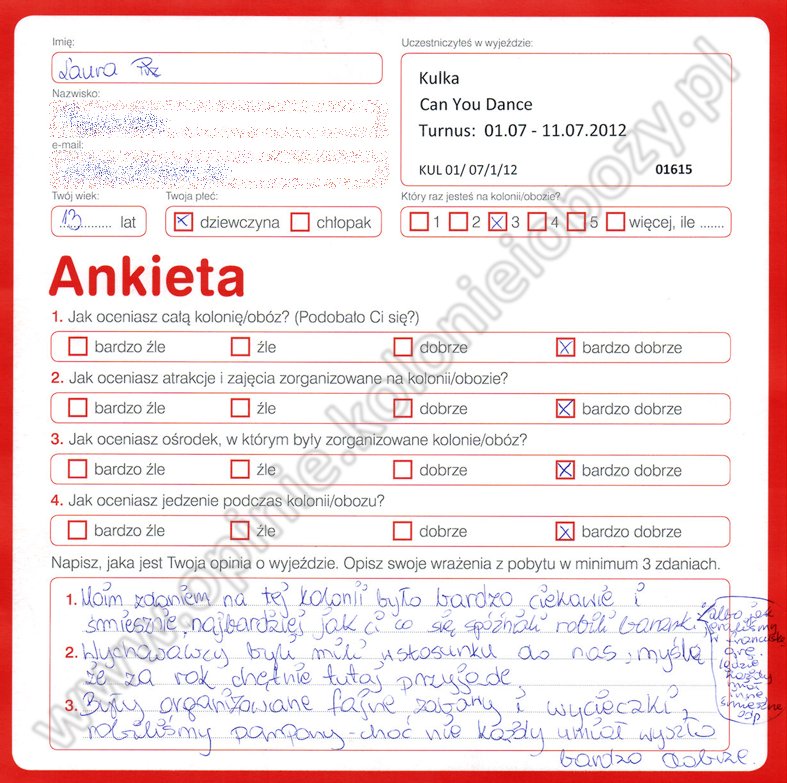 Imię:
Laura
Nazwisko:
e-mail:
Twój wiek:
13 lat
Twoja płeć:
dziewczyna chłopak
Uczestniczyłeś w wyjeździe:
Kulka
Can You Dance
Turnus: 01.07 - 11.07.2012
KUL 01/ 07/1/12 01615
Który raz jesteś na kolonii/obozie?
1 2 3 4 5 więcej, ile .......
Ankieta
1. Jak oceniasz całą kolonię/obóz? (Podobało Ci się?)
bardzo źle źle dobrze bardzo dobrze
2. Jak oceniasz atrakcje i zajęcia zorganizowane na kolonii/obozie?
bardzo źle źle dobrze bardzo dobrze
3. Jak oceniasz ośrodek, w którym były zorganizowane kolonie/obóz?
bardzo źle źle dobrze bardzo dobrze
4. Jak oceniasz jedzenie podczas kolonii/obozu?
bardzo źle źle dobrze bardzo dobrze
Napisz, jaka jest Twoja opinia o wyjeździe. Opisz swoje wrażenia z pobytu w minimum 3 zdaniach.
1. Moim zdaniem na tej kolonii było bardzo ciekawie i
śmiesznie, najbardziej jak ci co się spóźniali robili baranki
2. Wychowawcy byli mili w stosunku do nas, myślę
że za rok chętnie tutaj przyjadę.
3. Były organizowane fajne zabawy i wycieczki,
robiliśmy pampany - choć nie każdy umiał wyszło
bardzo dobrze.
albo jak
w
grę.
każdy
miał
inne
śmieszne
www.opinie.kolonieiobozy.pl